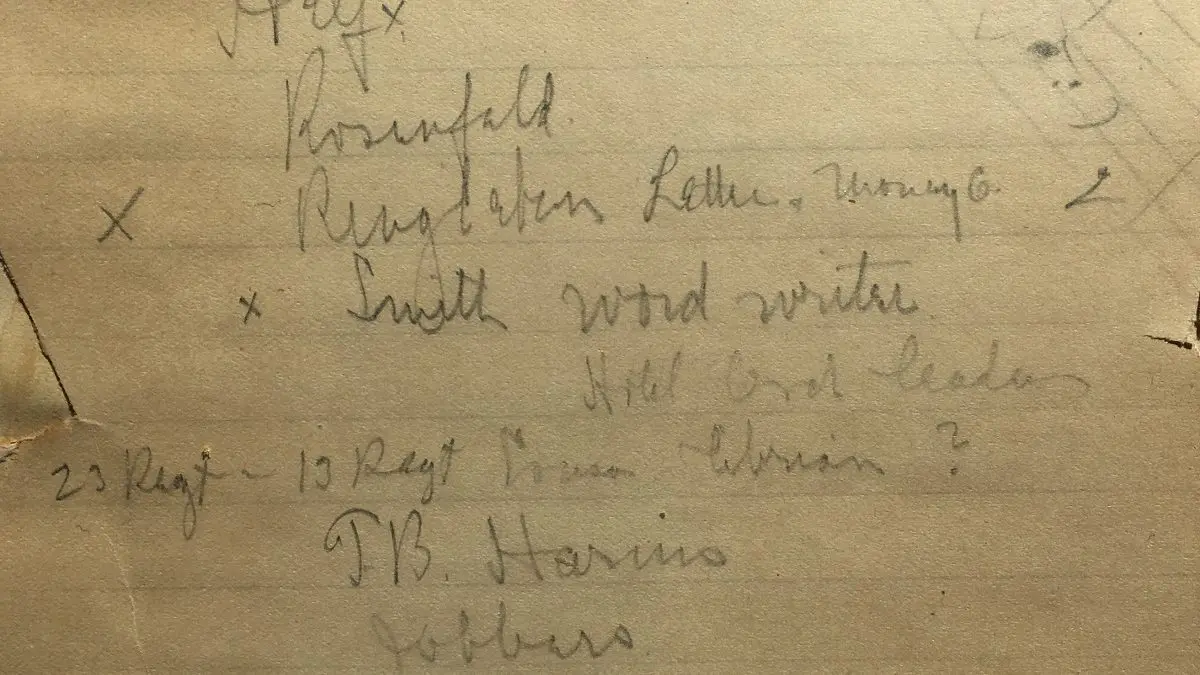 Rosenfeld.
X Ringleben Letter. Money 6. 2
x Smith word writer.
Hotel Orch leaders
23 Regt - 13 Regt ?
T.B. Harms
Jobbers